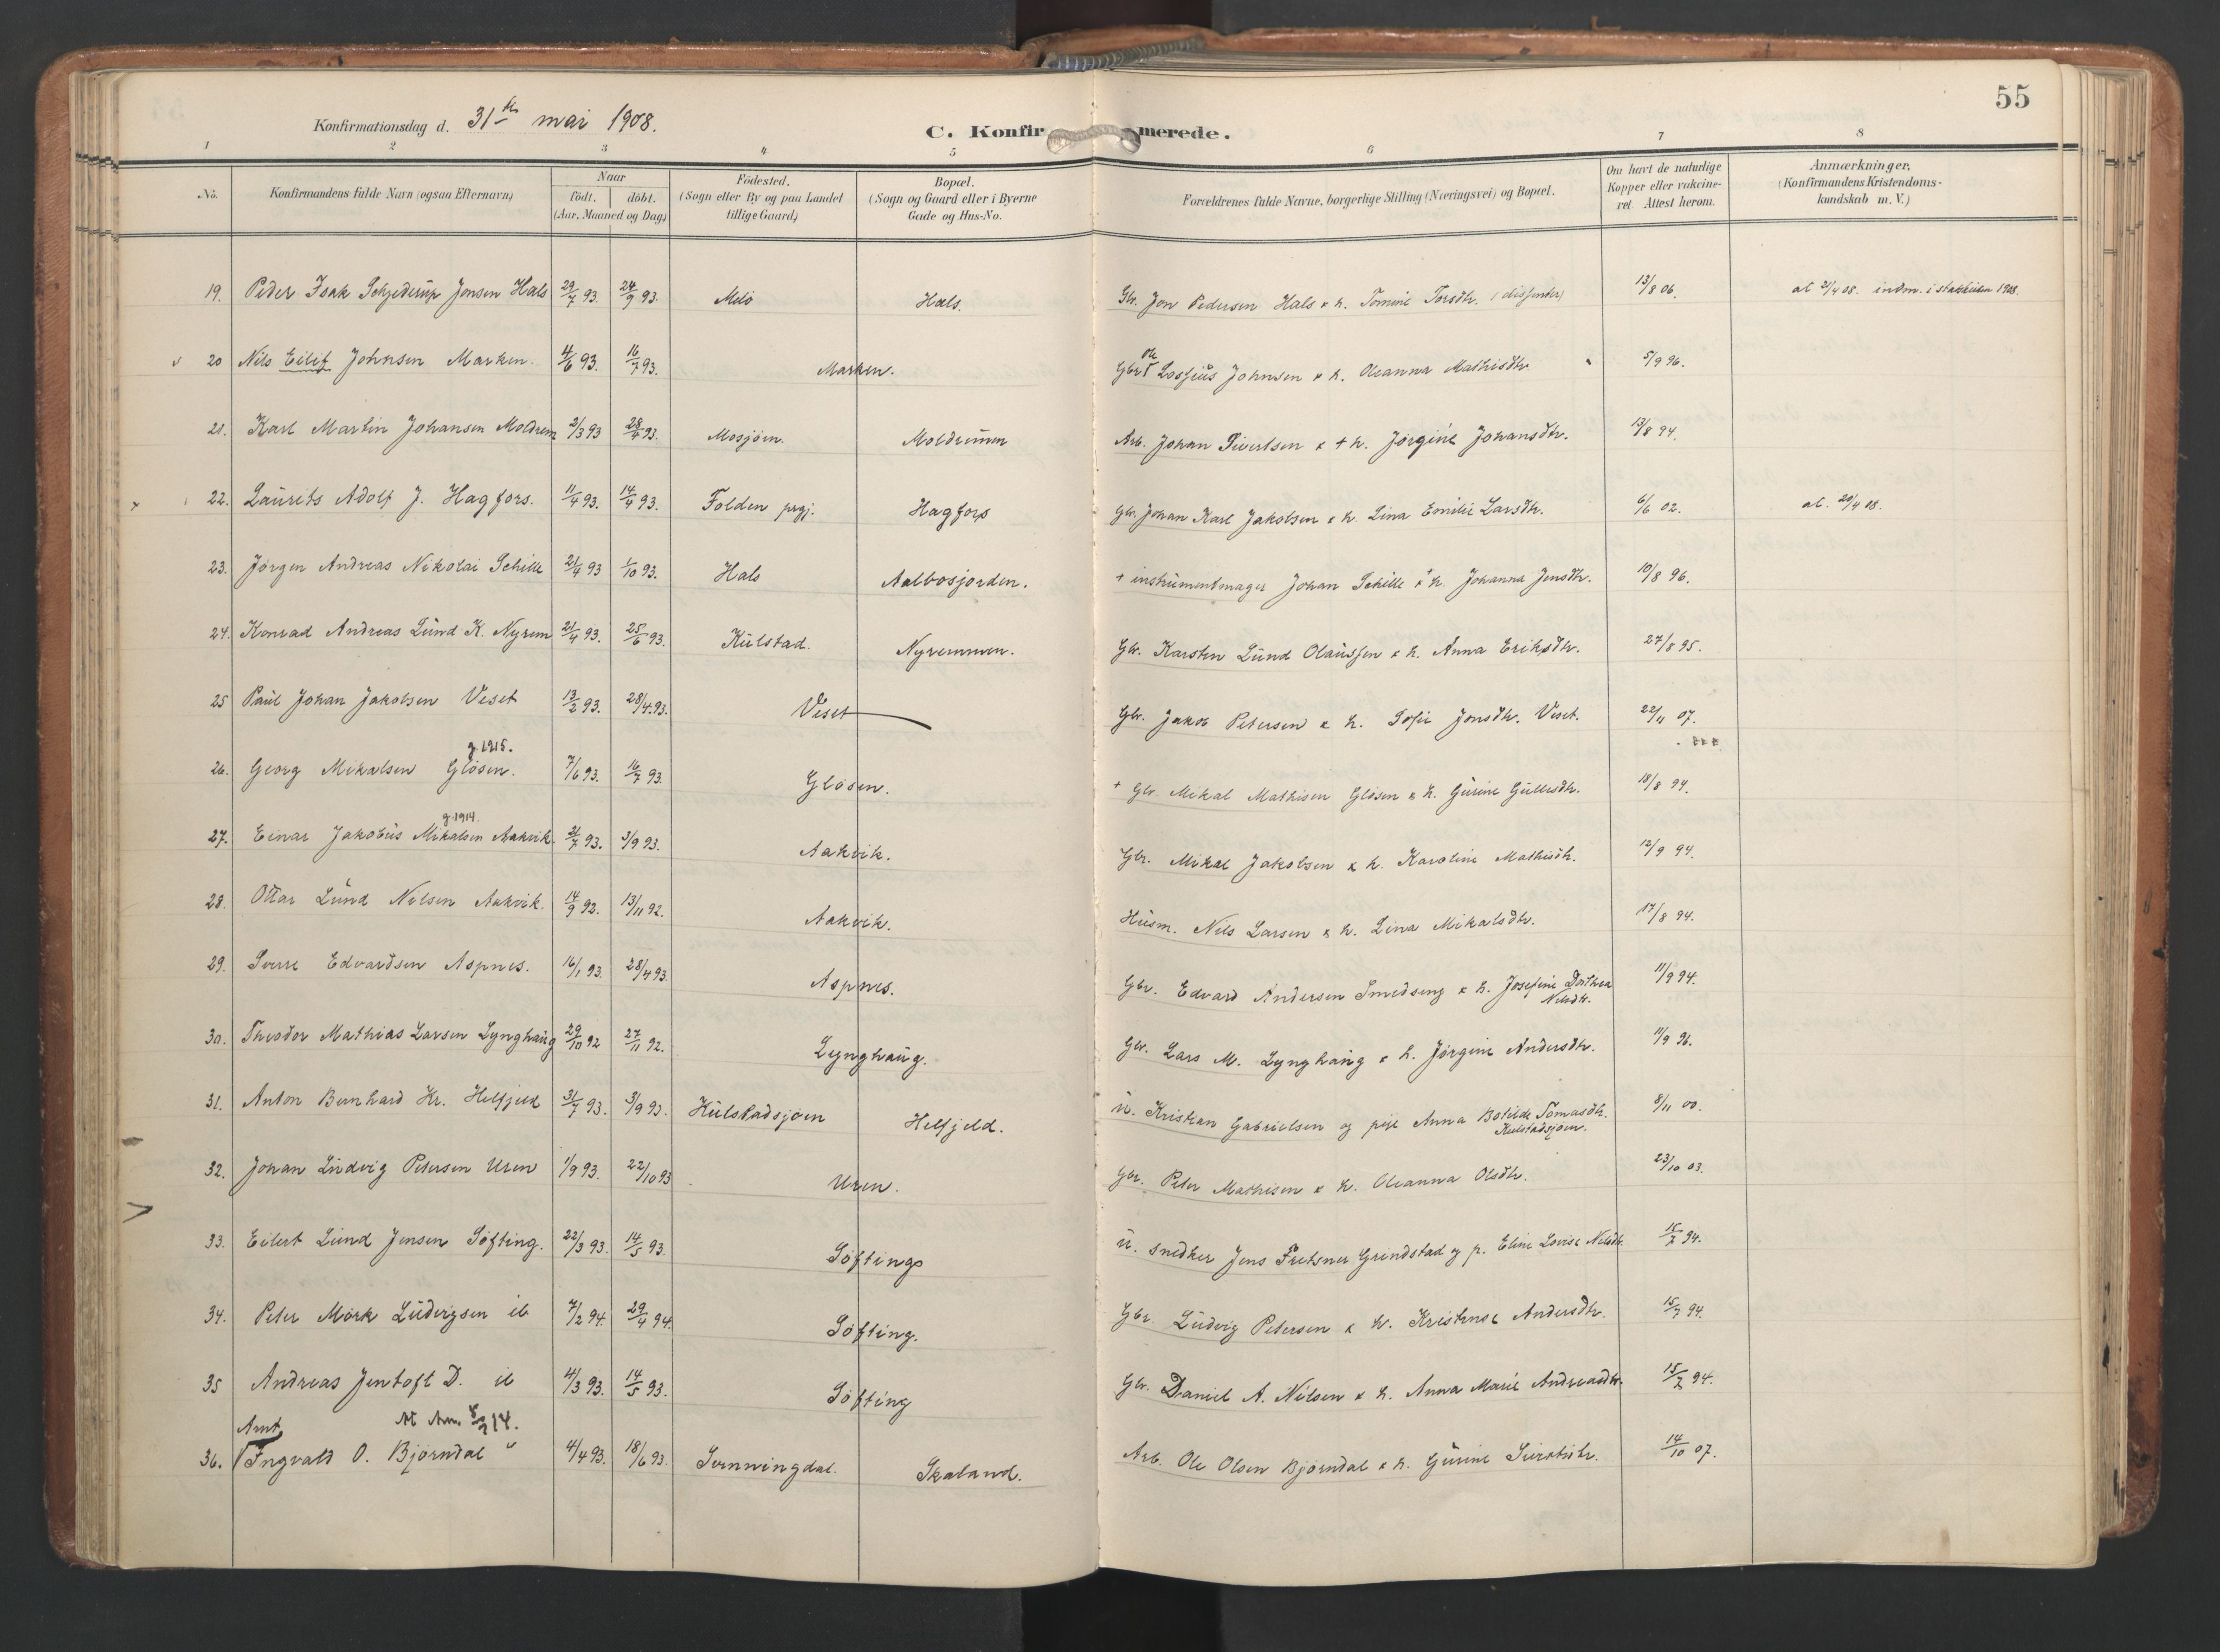 55
Konfirmationsdag d. 31te mai 1908.
C. Konfir merede.
1 2 3 4 5 6 7 8
No. Konfirmandens fulde Navn (ogsaa Efternavn) Naar født. døbt. (Aar, Maaned og Dag) Fødested. (Sogn eller By og paa Landet tillige Gaard) Bopæl. (Sogn og Gaard eller i Byerne Gade og Hus-No. Forældrenes fulde Navne, borgerlige Stilling (Næringsvei) og Bopæl. Om havt de naturlige Kopper eller vakcineret. Attest herom. Anmærkninger, (Konfirmandens Kristendomskundskab m. V.)
19. Peder Isak Schjederup Jonsen Hals 29/7 93. 24/9 93. Milø Hals. Gbr. Jon Pedersen Hals & h. Tomine Torsdtr. (dissenter) 13/8 06. at 2/4 08. indm. i statskirken 1908.
20 Nils Eilif Johnsen Marken. 4/6 93. 16/7 93. Marken. Gbr. Ole Lossius Johnsen & h. Oleanna Mathisdtr. 5/9 96.
21. Karl Martin Johansen Moldrem 2/3 93 28/4 93. Mosjøen. Moldremen Arb. Johan Sivertsen & + h. Jørgine Johansdtr. 13/8 94.
22. Laurits Adolf J. Hagfors. 11/4 93. 14/4 93. Folden prgj. Hagfors Gbr. Johan Karl Jakobsen & h. Lina Emilie Larsdtr. 6/6 02. at. 20/4 08.
23. Jørgen Andreas Nikolai Schille 21/4 93 1/10 93. Hals Aalbosjorden. + instrumentmager Johan Schille & + h. Johanna Jensdtr. 10/8 96.
24. Konrad Andreas Lund K. Nyrem 21/4 93. 25/6 93. Kulstad. Nyremmen. Gbr. Karsten Lund Olaussen & h. Anna Eriksdtr. 27/8 95.
25 Paul Johan Jakobsen Veset 13/2 93. 28/4 93. Veset Gbr. Jakob Petersen & h. Sofie Jonsdtr. Veset. 22/11 07.
g. 1915.
26. Georg Mikalsen Gløsen. 7/6 93. 16/7 93. Gløsen. + Gbr. Mikal Mathisen Gløsen & h. Gurine Gullesdtr. 18/8 94.
g. 1914.
27. Einar Jakobus Mikalsen Aakvik. 2/7 93. 3/9 93. Aakvik. Gbr. Mikal Jakobsen & h. Karoline Mathisdtr. 12/9 94.
28. Ottar Lund Nilsen Aakvik. 14/9 92. 13/11 92. Aakvik. Husm. Nils Larsen & h. Lina Mikalsdtr. 17/8 94.
29. Sverre Edvardsen Aspnes. 16/1 93. 28/4 93. Aspnes. Gbr. Edvard Andersen Smedseng & h. Josefine Dorthea Nilsdtr. 11/9 94.
30. Theodor Mathias Larsen Lynghaug 29/10 92 27/11 92. Lynghaug. Gbr. Lars M. Lynghaug & h. Jørgine Andersdtr. 11/9 96.
31. Anton Bernhard Kr. Helfjeld 31/7 93. 3/9 93. Kulstadsjøen Helfjeld. u. Kristian Gabrielsen og pige Anna Botilde Tomasdtr. Kulstadsjøen. 8/11 00.
32. Johan Ludvig Petersen Uren 1/9 93. 22/10 93 Uren. Gbr. Peter Mathisen & h. Oleanna Olsdtr. 23/10 03.
33. Eilert Lund Jensen Søfting. 22/3 93. 14/5 93. Søfting u. snedker Jens Grindstad og p. Eline Lovise Nilsdtr. 15/7 94.
34. Peter Mørk Ludvigsen ib 7/2 94. 29/4 94. Søfting. Gbr. Ludvig Petersen & h. Kristense Andersdtr. 15/7 94.
35 Andreas Jentoft D. ib 4/3 93. 14/5 93. Søfting Gbr. Daniel A. Nilsen & h. Anna Marie Andreasdtr. 15/7 94.
Arnt At Am. 5/3 14.
36. Ingvald O. Bjørndal 4/4 93. 18/6 93. Svenningdal. Skaland. Arb. Ole Olsen Bjørndal & h. Gurine 14/10 07.